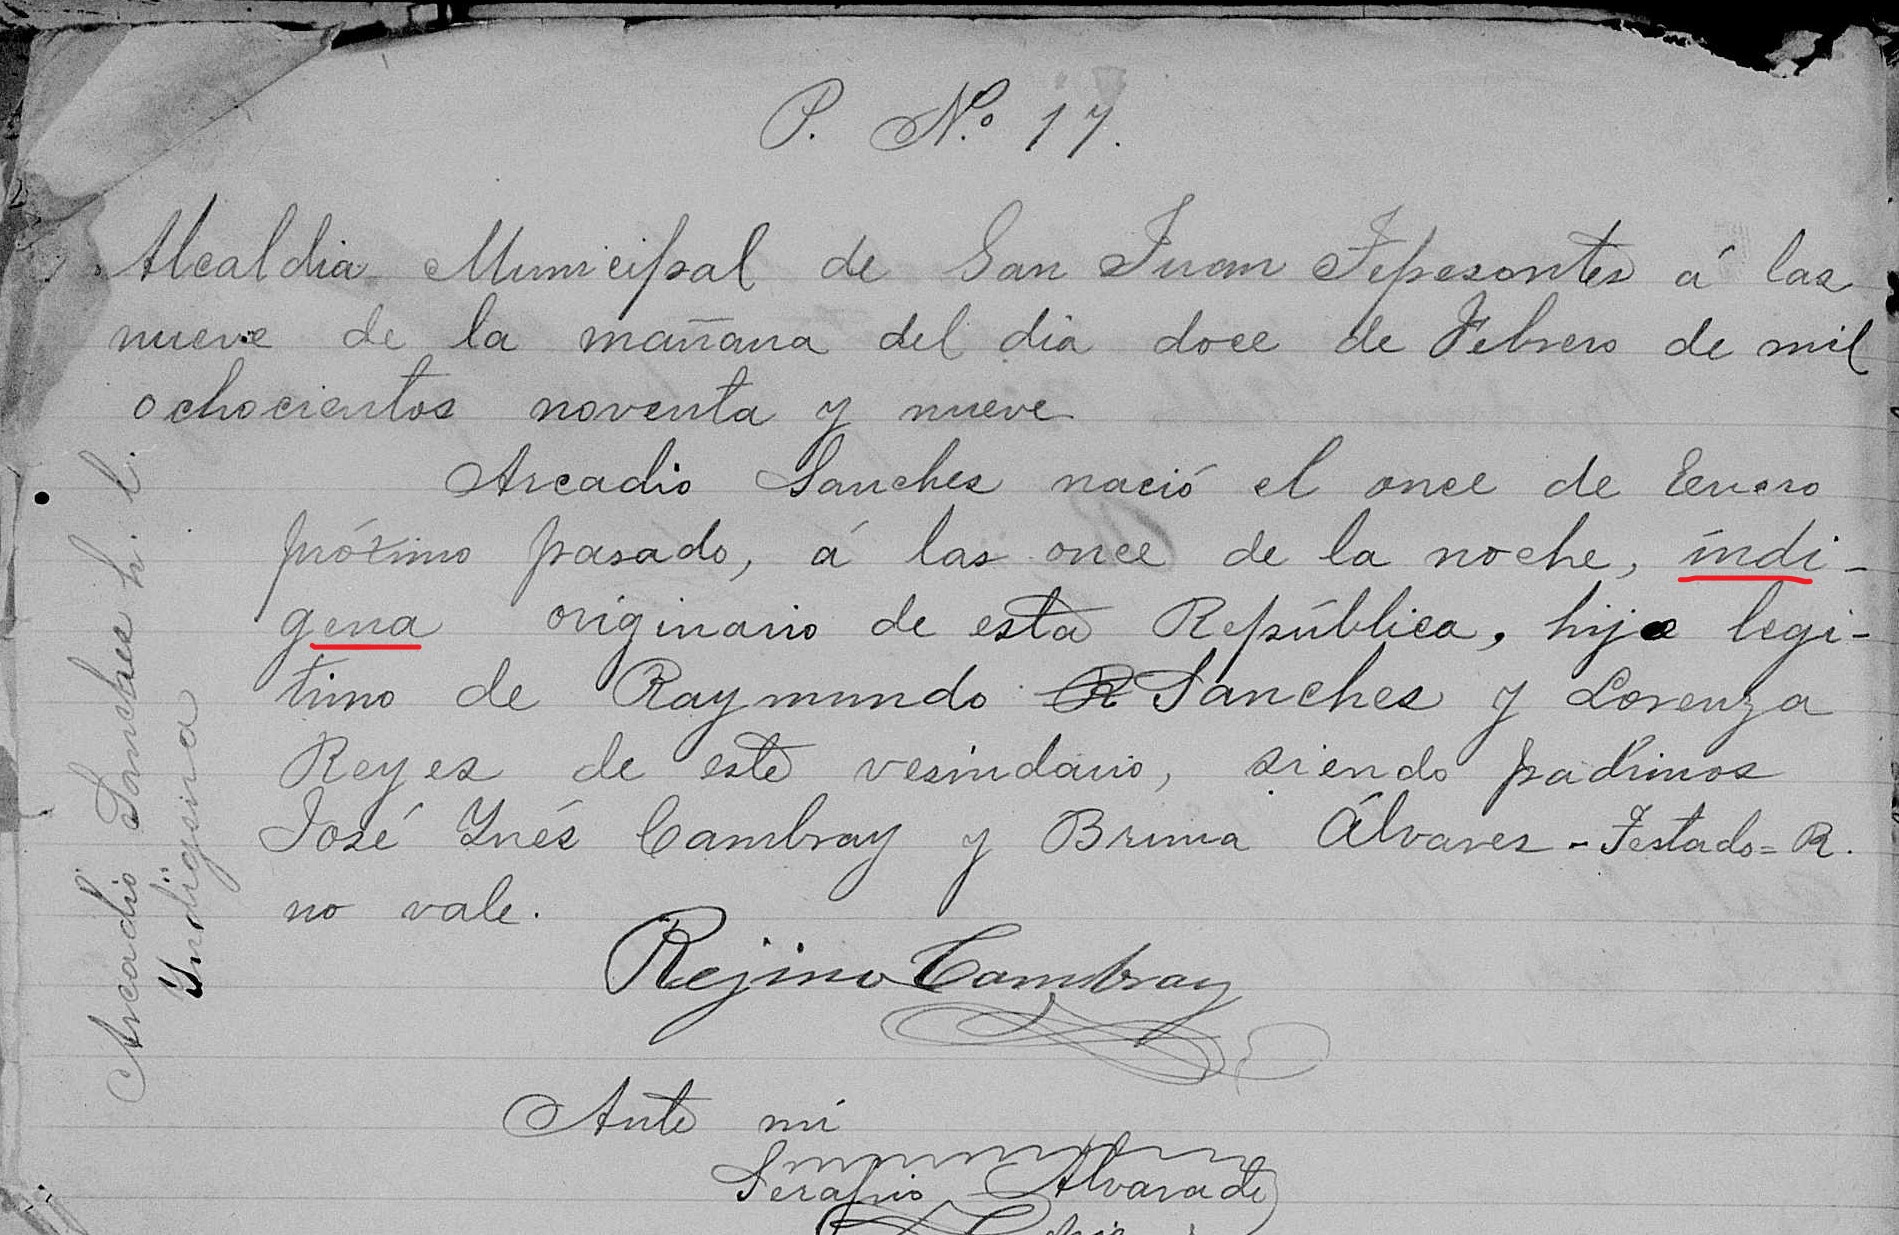 P. N.º 17.
Alcaldia Municipal de San Juan Tepesontes á las
nueve de la mañana del dia doce de Febrero de mil
ochocientos noventa y nueve
Arcadio Sanches nació el once de Enero
próximo pasado, á las once de la noche, indi-
gena originario de esta República, hijo legi-
timo de Raymundo R Sanches y Lorenza
Reyes de este vesindario, siendo padrinos
José Ynés Cambray y Bruna Álvares - Testado = R.
no vale.
Rejino Cambray
Ante mí
Serapio Alvarado
Srio
Arcadio Sanches h. l.
Yndigena